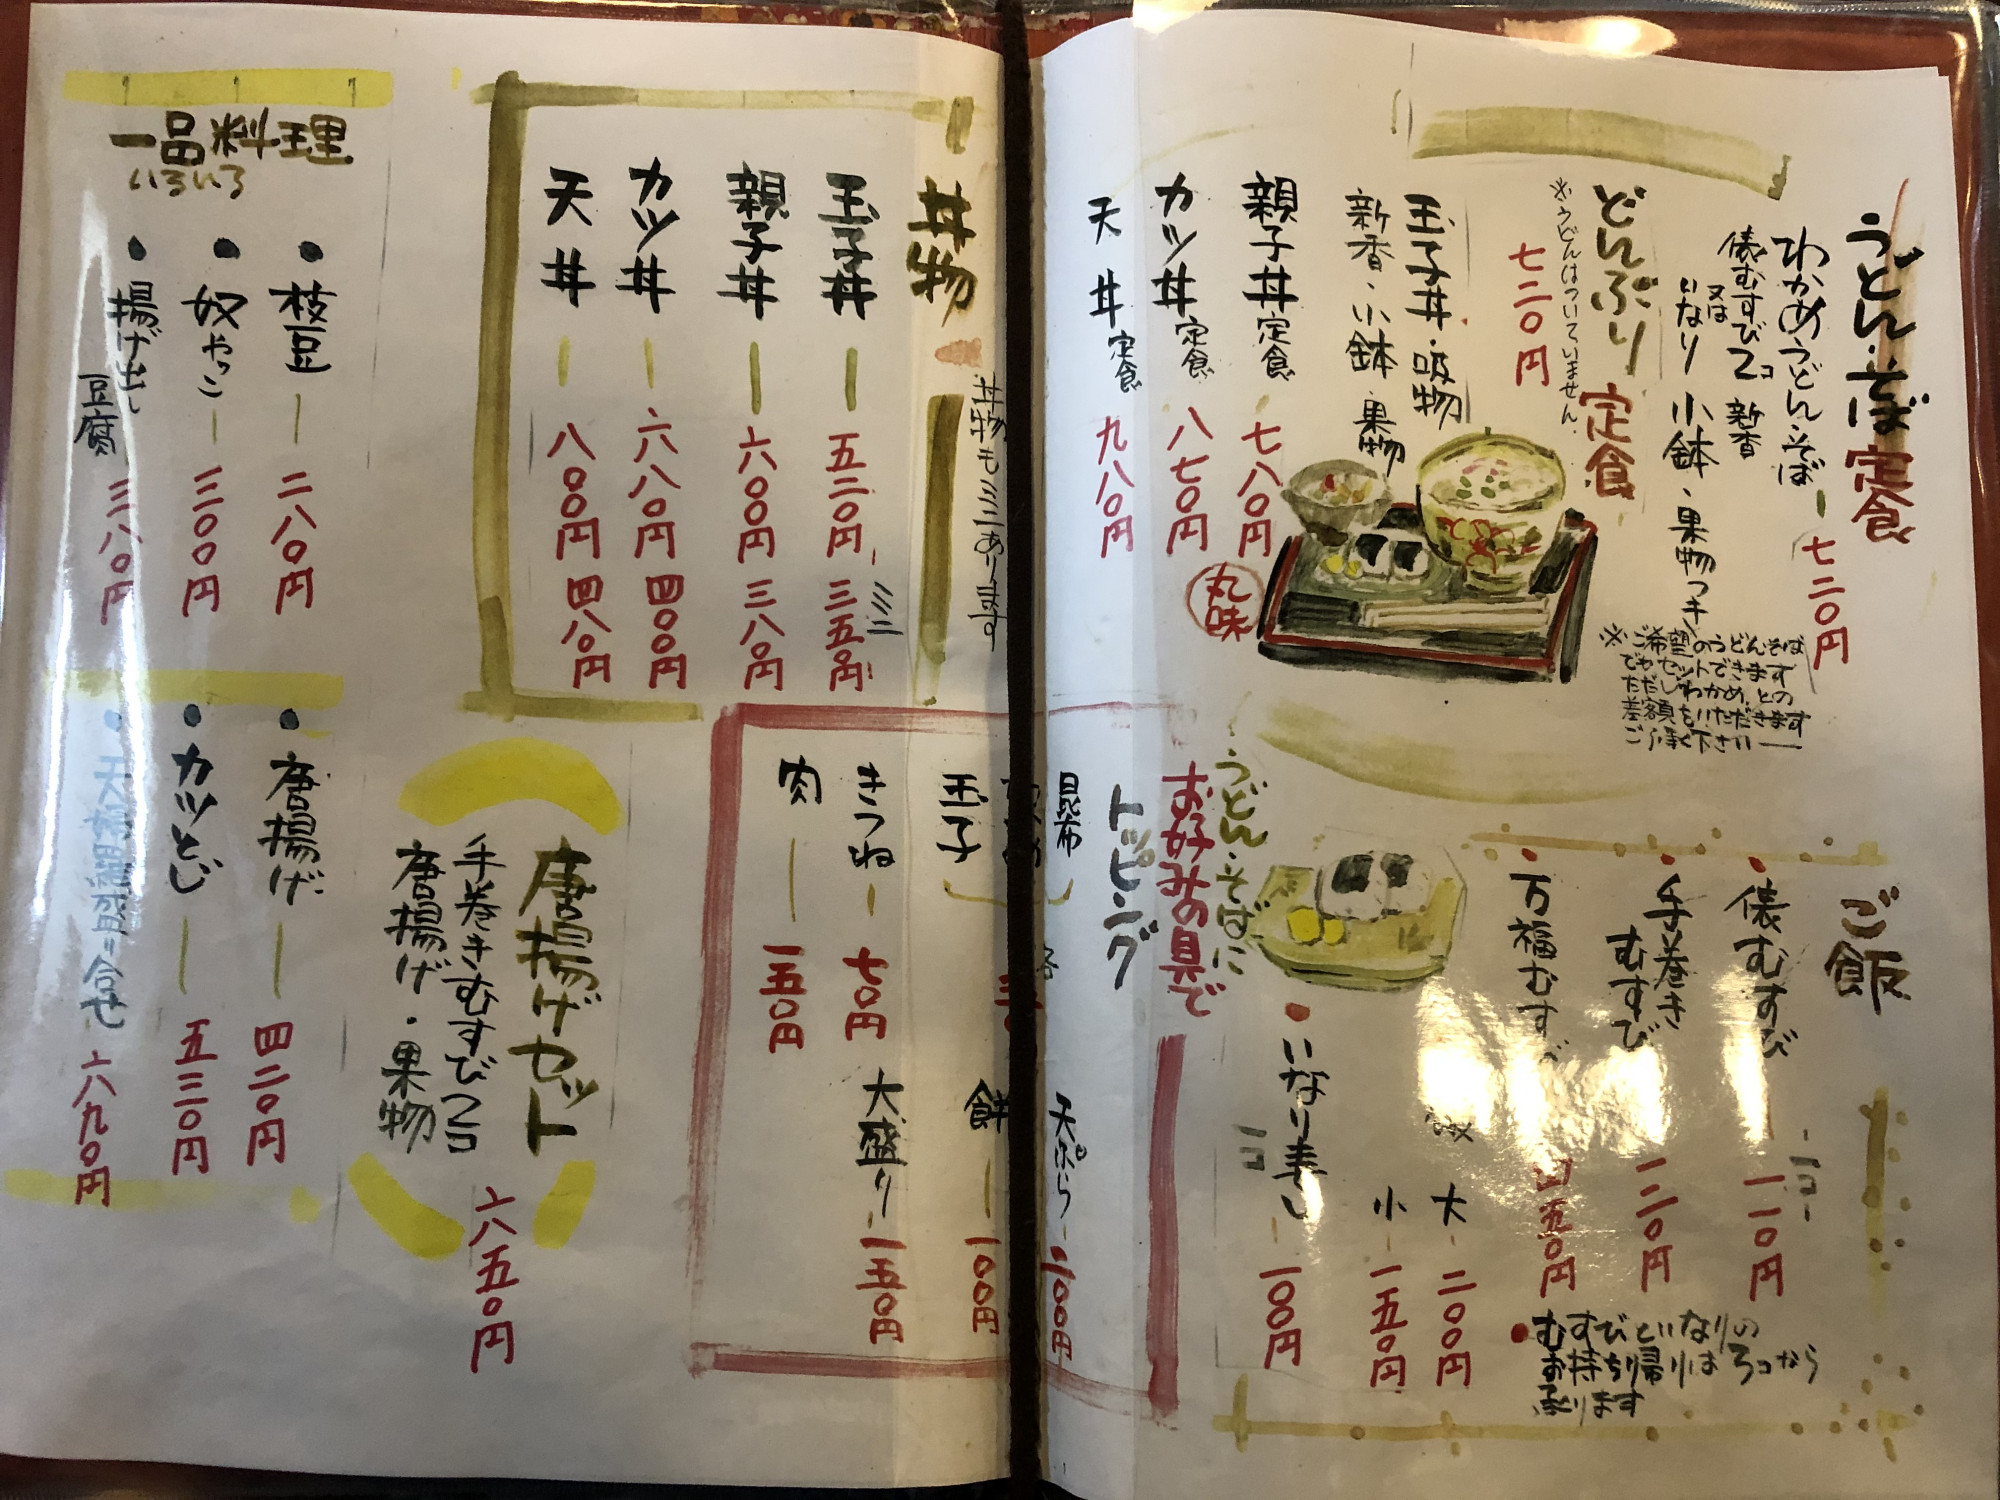 うどん・そば定食
わかめうどん・そば 七二〇円
俵むすび2コ 新香
又は
いなり 小鉢・果物つき
※ご希望のうどんそば
でもセットできます
ただしわかめとの
差額をいただきます
ご了承下さい
どんぶり定食
※うどんはついていません。
七二〇円
玉子丼・吸物
新香・小鉢・果物
親子丼定食 七八〇円
カツ丼定食 八七〇円
天丼定食 九八〇円
丸味
ご飯
俵むすび 一一〇円
一コ
手巻き
むすび 一二〇円
万福むすび 四五〇円
飯 大 二〇〇円
小 一五〇円
いなり寿し 一〇〇円
一コ
むすびといなりの
お持ち帰りは3コから
承ります
うどん・そばに
お好みの具で
トッピング
昆布
玉子
きつね 七〇円
肉 一五〇円
天ぷら 100円
餅 一〇〇円
大盛り 一五〇円
丼物
丼物もミニあります
ミニ
玉子丼 五二〇円 三五〇円
親子丼 六〇〇円 三八〇円
カツ丼 六八〇円 四〇〇円
天丼 八〇〇円 四八〇円
唐揚げセット
手巻きむすび2コ
唐揚げ・果物
六五〇円
一品料理
いろいろ
・枝豆 二八〇円
・奴やっこ 三〇〇円
・揚げ出し
豆腐 三八〇円
・唐揚げ 四二〇円
・カツとじ 五三〇円
・天婦羅盛り合せ 六九〇円